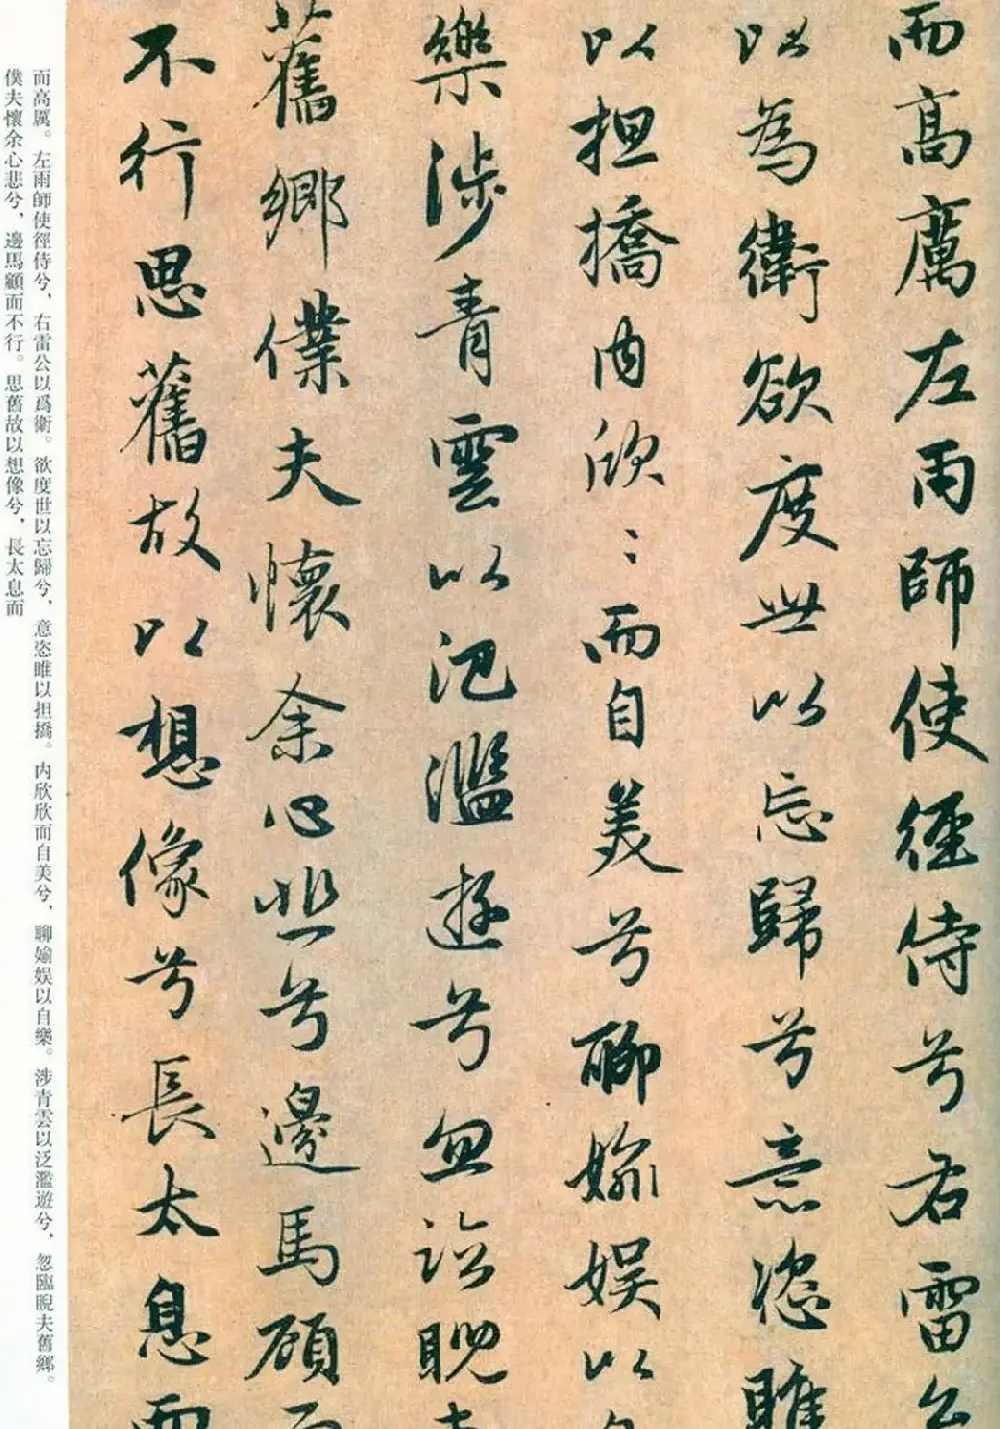 而高厲左雨師使徑侍兮右雷公
以為衛欲度世以忘歸兮意恣睢
以担撟內欣〻而自美兮聊媮娛以自
樂涉青雲以汜濫遊兮忽臨睨夫
舊鄉僕夫懷余心悲兮邊馬顧而
不行思舊故以想像兮長太息而
而高厲。左雨師使徑侍兮，右雷公以爲衛。欲度世以忘歸兮，意恣睢以担撟。内欣欣而自美兮，聊媮娱以自樂。涉青雲以泛濫遊兮，忽臨睨夫舊鄉。
僕夫懷余心悲兮，邊馬顧而不行。思舊故以想像兮，長太息而